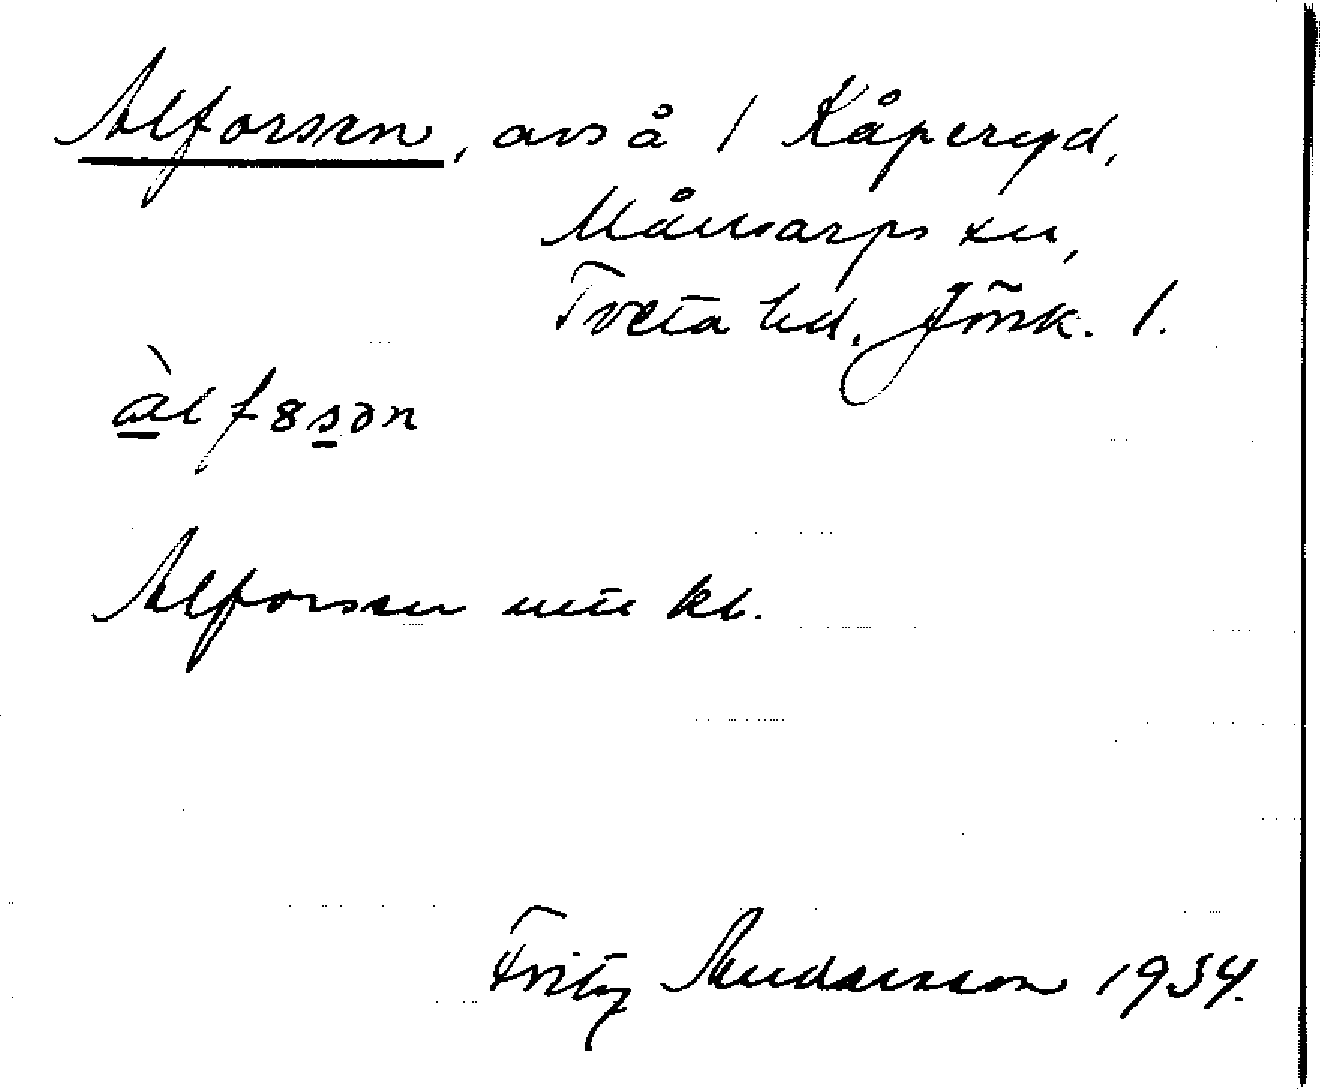 Alforsen, avs å 1 Kåperyd,
Månsarps sn,
Tveta hd. Jönk. l.
àlfɞsən
Alforsen mtr kt.
Fritz Andersson 1934.